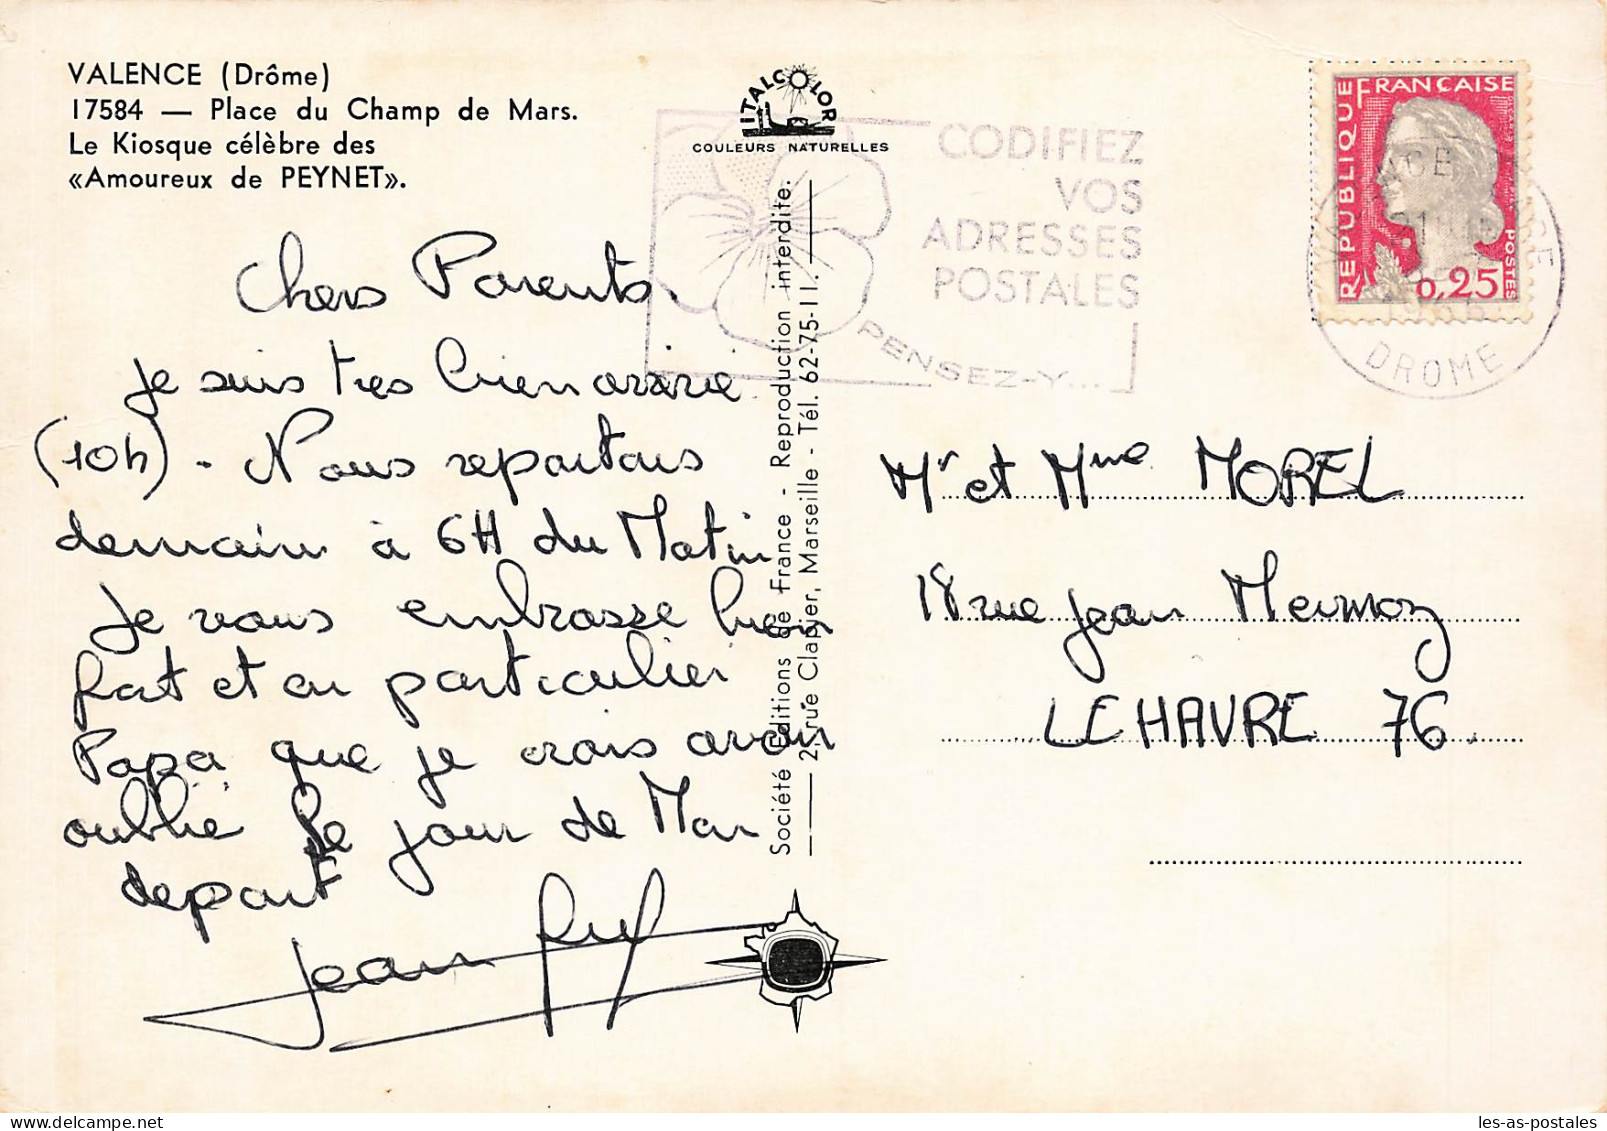 VALENCE (Drôme)
17584 — Place du Champ de Mars.
Le Kiosque célèbre des
«Amoureux de PEYNET».
ITALCOLOR
COULEURS NATURELLES
CODIFIEZ
VOS
ADRESSES
POSTALES
PENSEZ-Y...
REPUBLIQUE FRANCAISE
POSTES
0,25
DROME
Chers Parents
je suis très bien arrivé
(10h) - Nous repartons
demain à 6H du Matin
Je vous embrasse bien
fort et en particulier
Papa que je crois avoir
oublié le jour de Mon
depart
Jean
Société Editions de France - Reproduction interdite.
2, rue Clapier, Marseille - Tél. 62-75-11.
Mr et Mme MOREL
18 rue Jean Mermoz
LE HAVRE 76.
les-as-postales
www.delcampe.net